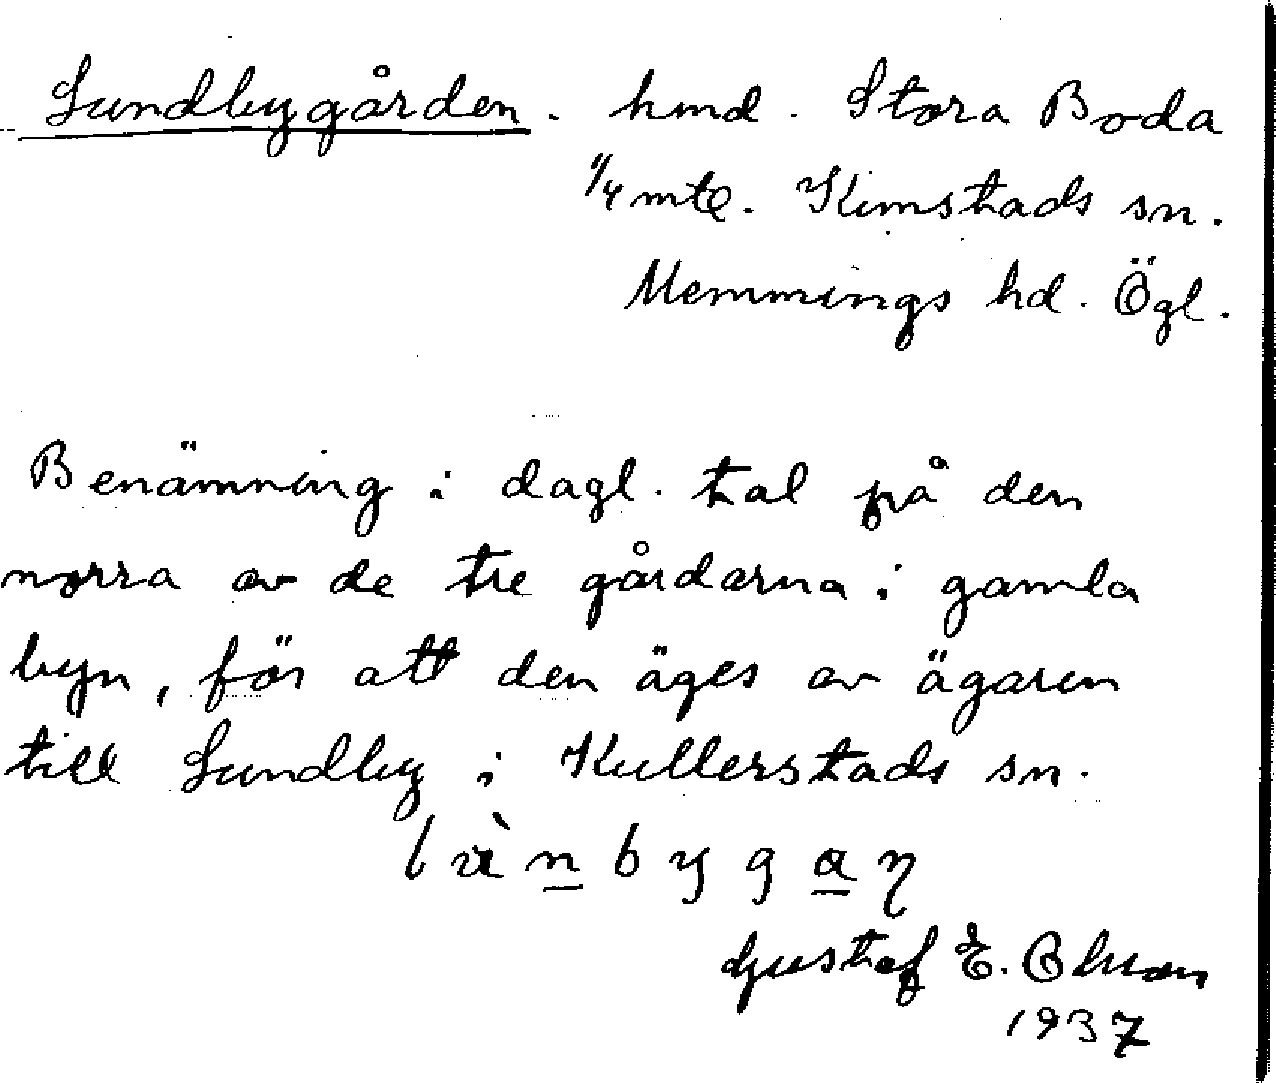 Lundbygården. hmd. Stora Boda
1/4 mtl. Kimstads sn.
Memmings hd. Ögl.
Benämning i dagl. tal på den
norra av de tre gårdarna i gamla
byn, för att den äges av ägaren
till Lundby i Kullerstads sn.
l ù n b y g a ŋ
Gustaf E.
1937